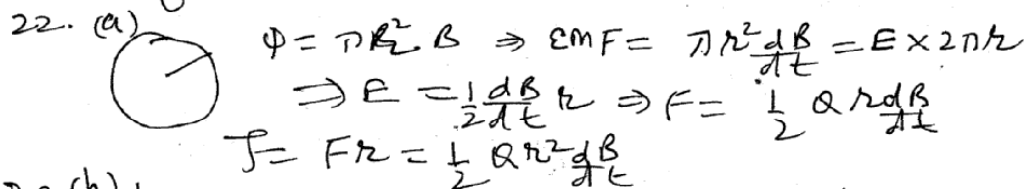 22. (a) Φ = πr². B ⇒ EMF = πr² dB/dt = E × 2πr
⇒ E = 1/2 dB/dt r ⇒ F = 1/2 Q r dB/dt
J = Fr = 1/2 Q r² dB/dt